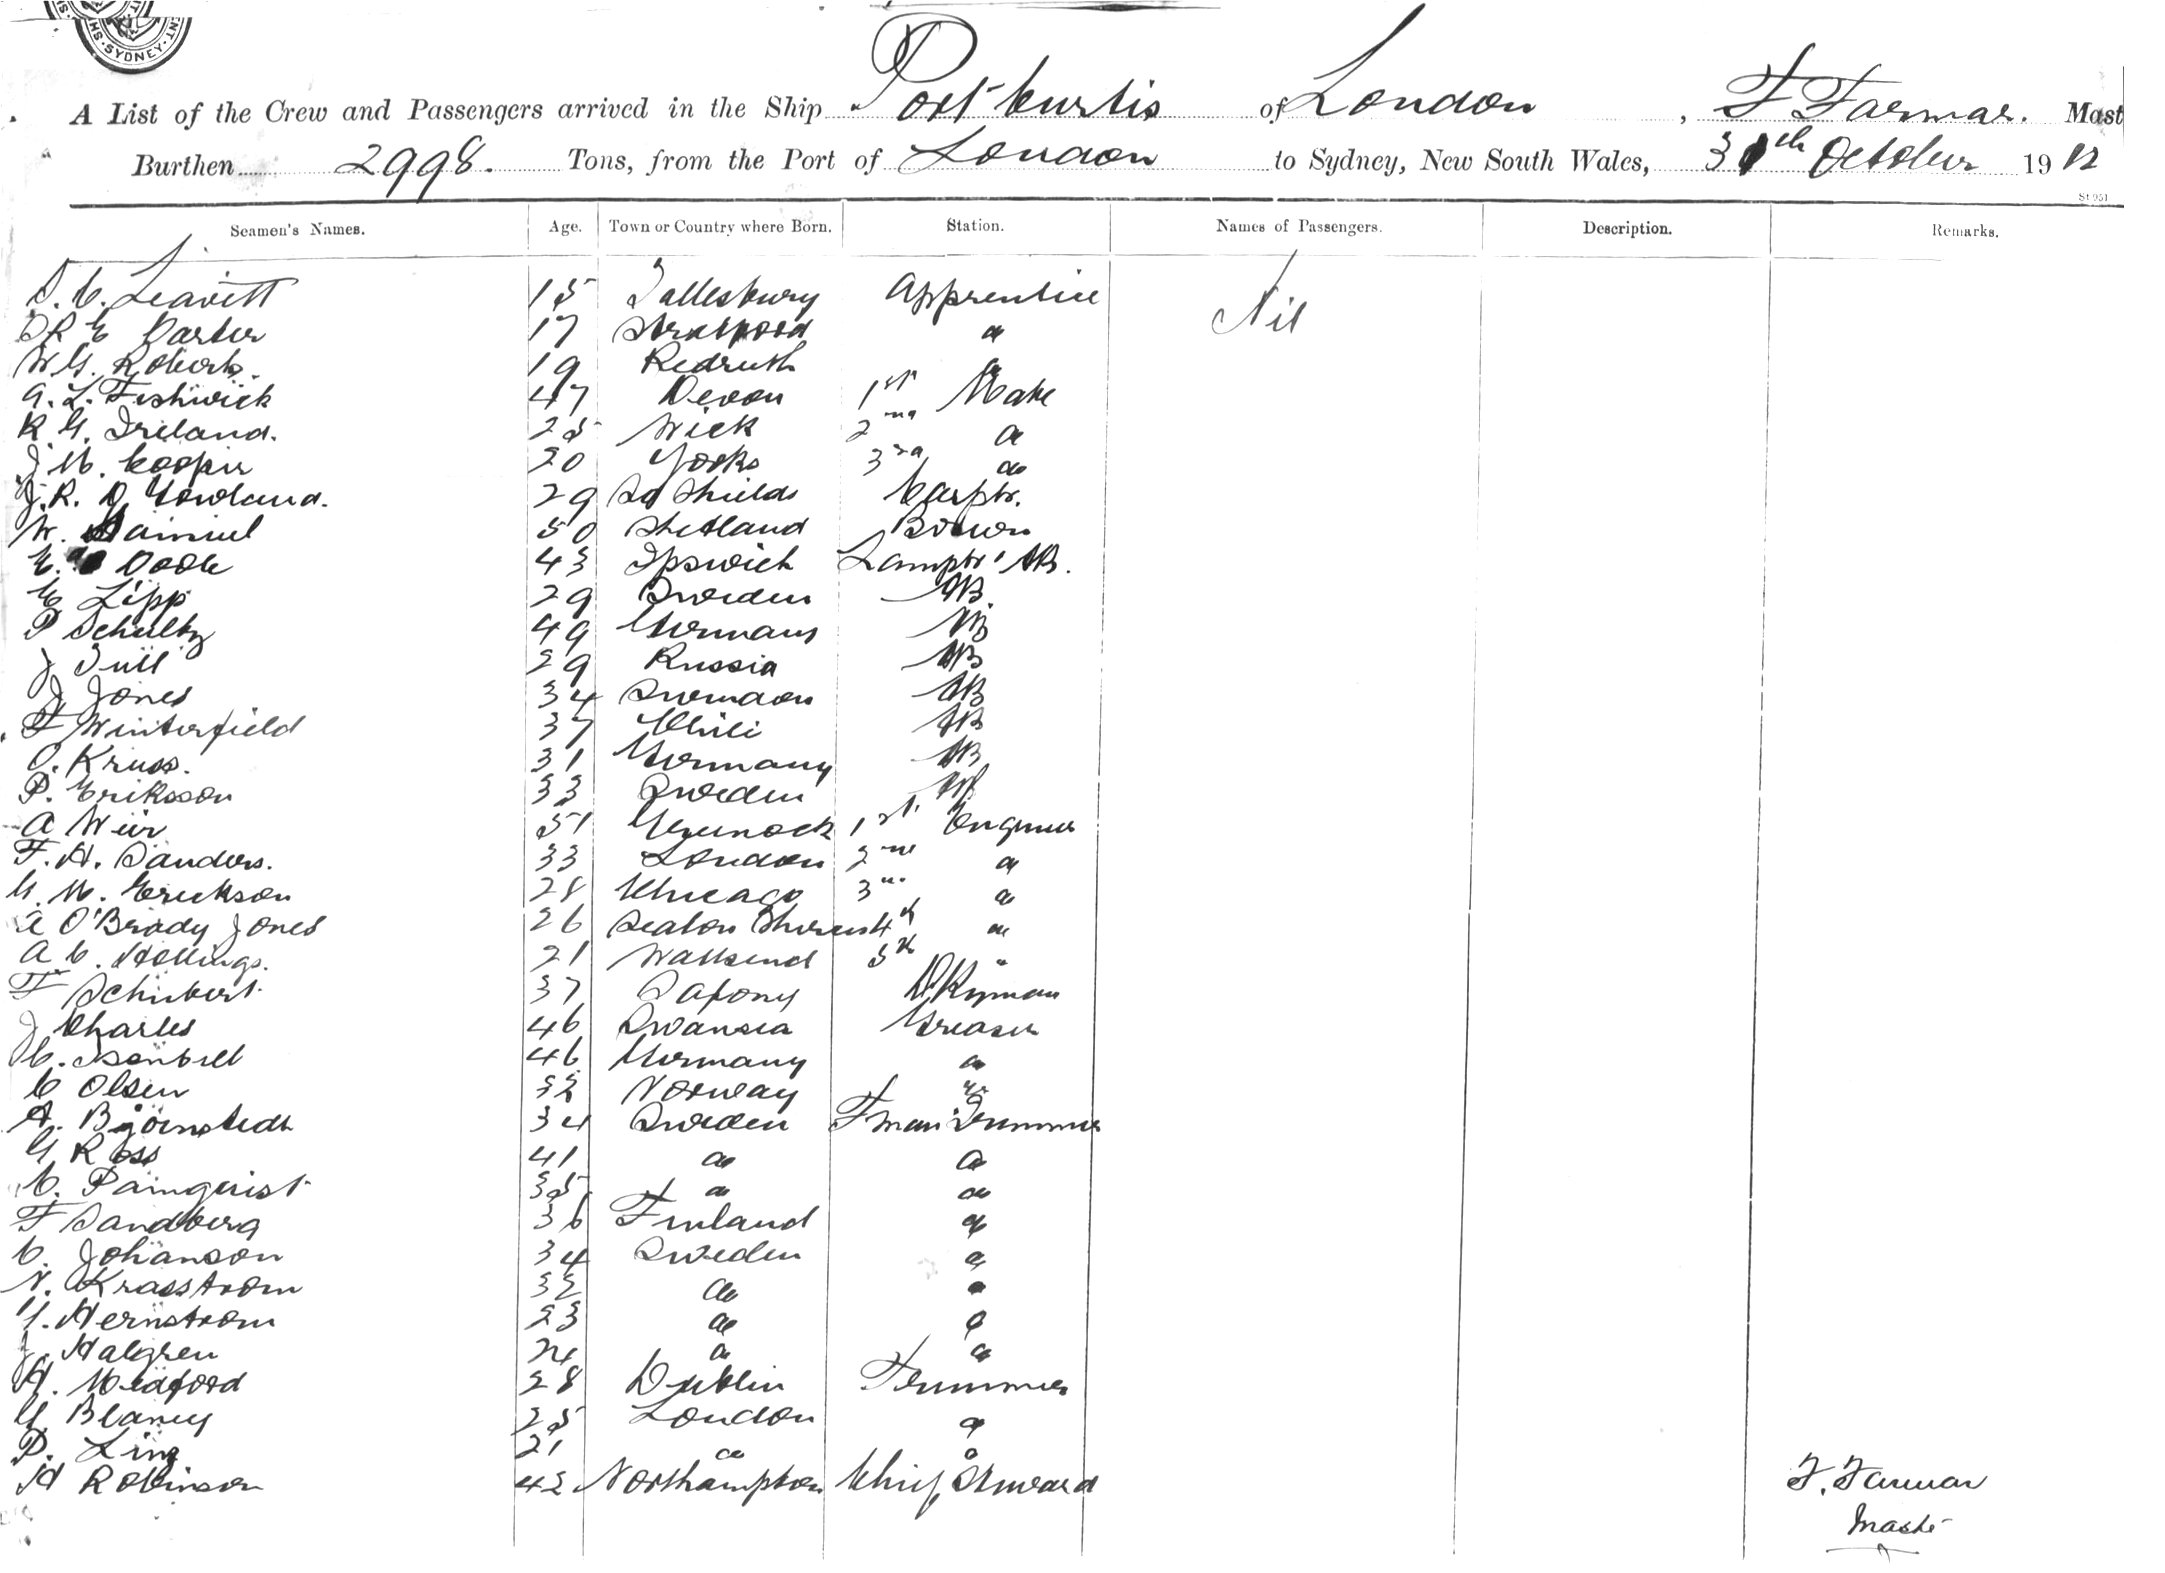 SYDNEY
A List of the Crew and Passengers arrived in the Ship Port Curtis of London, F Farmar. Mast
Burthen 2998. Tons, from the Port of London to Sydney, New South Wales, 31th October 1912
Seamen's Names. Age. Town or Country where Born. Station. Names of Passengers. Description. Remarks.
Leavitt 15 Apprentice Nil
17
W G. Roberts. 19 Redruth
A. L. Fishwick 47 Devon 1st Mate
R. G. Ireland. 25 Wick 2nd
J. M. Cooper 20 Yorks 3rd
J. R. Gowland. 29 So Shields Carptr.
W. 50 Shetland Bosun
43 Ipswich Lamptr AB.
E Lipp 29 Sweden AB.
P Schultz 49 Germany AB
J 29 Russia AB
J Jones 34 AB
F Winterfield 37 Chili AB
O. Kruss. 31 Germany AB
P. Eriksson 33 Sweden AB
A Weir 51 Greenock 1st. Engineer
F. H. Sanders. 33 London 2nd
G. M. Erickson 28 Chicago 3rd
A O'Brady Jones 26 Seaton 4th
A C. Hollings. 21 Wallsend 5th
F Schubert. 37 Saxony DKyman
J Charles 46 Swansea Greaser
C. 46 Germany
C Olsen Norway
A. Bjornstedt 34 Sweden Fman Trimmer
G Ross 41
C. Palmquist 35
F Sandberg 36 Finland
C. Johanson 34 Sweden
N. Krasstrom 32
G. Hernstrom 23
J. Halgren 24
H. Medford 28 Dublin Trimmer
G Blaney 25 London
P. King 21
H Robinson 42 Northampton Chief Steward F. Farmar
Master